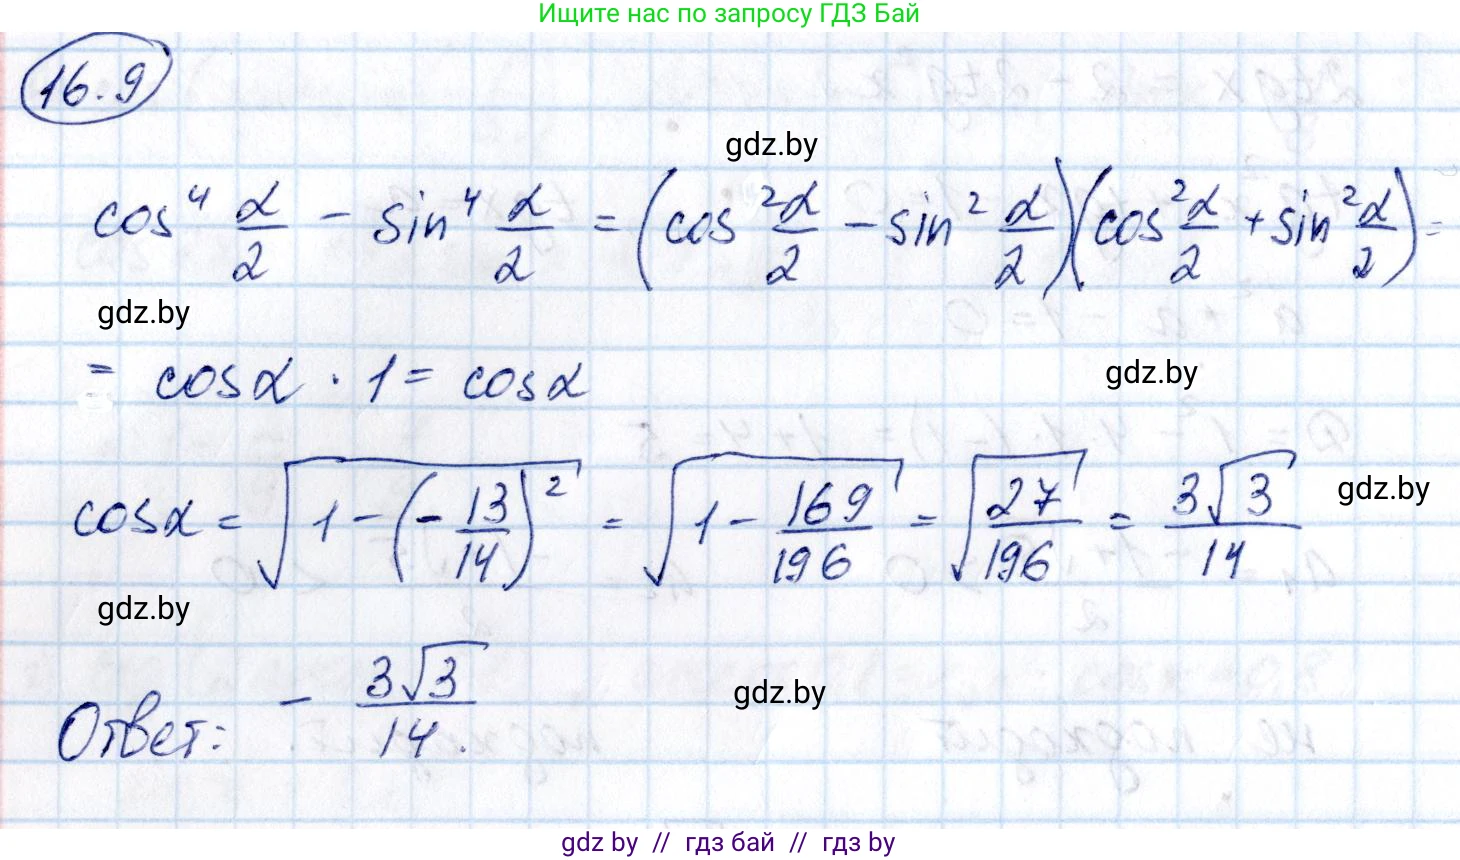 Ищите нас по запросу ГДЗ Бай
16.9
gdz.by
cos⁴ α/2 − sin⁴ α/2 = (cos² α/2 − sin² α/2)(cos² α/2 + sin² α/2) =
gdz.by
= cosα · 1 = cosα
gdz.by
cosα = √(1 − (−13/14)²) = √(1 − 169/196) = √(27/196) = 3√3/14
gdz.by
gdz.by
Ответ: − 3√3/14.
gdz.by
gdz by // гдз бай // гдз by